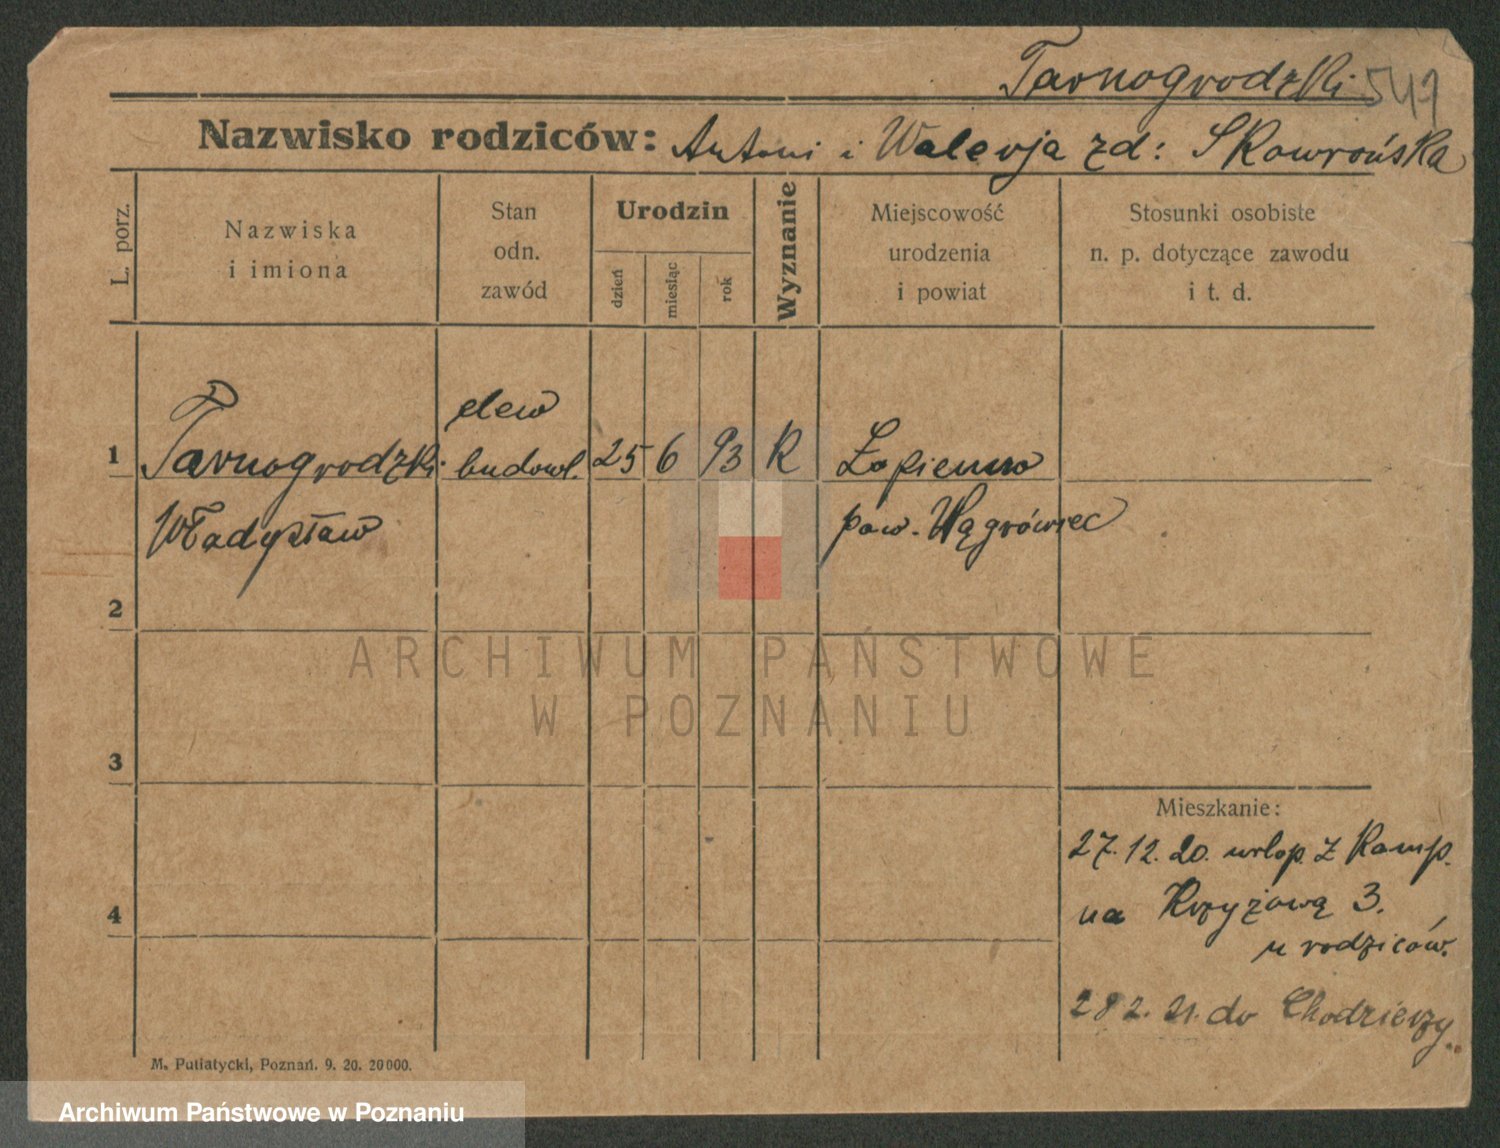 Tarnogrodzki 541
Nazwisko rodziców: Antoni i Walerja zd: Skowrońska
L. porz.
Nazwiska
i imiona
Stan
odn.
zawód
Urodzin
dzień
miesiąc
rok
Wyznanie
Miejscowość
urodzenia
i powiat
Stosunki osobiste
n. p. dotyczące zawodu
i t. d.
1 Tarnogrodzki elew budowl. 25 6 93 R Łopienno
Władysław pow. Wągrówiec
2
3
Mieszkanie:
27.12.20. urlop. z Kamp.
4 na Krzyżową 3.
u rodziców.
28 2. 21. do Chodzieży
M. Putiatycki, Poznań. 9. 20. 20000.
ARCHIWUM PAŃSTWOWE
W POZNANIU
Archiwum Państwowe w Poznaniu